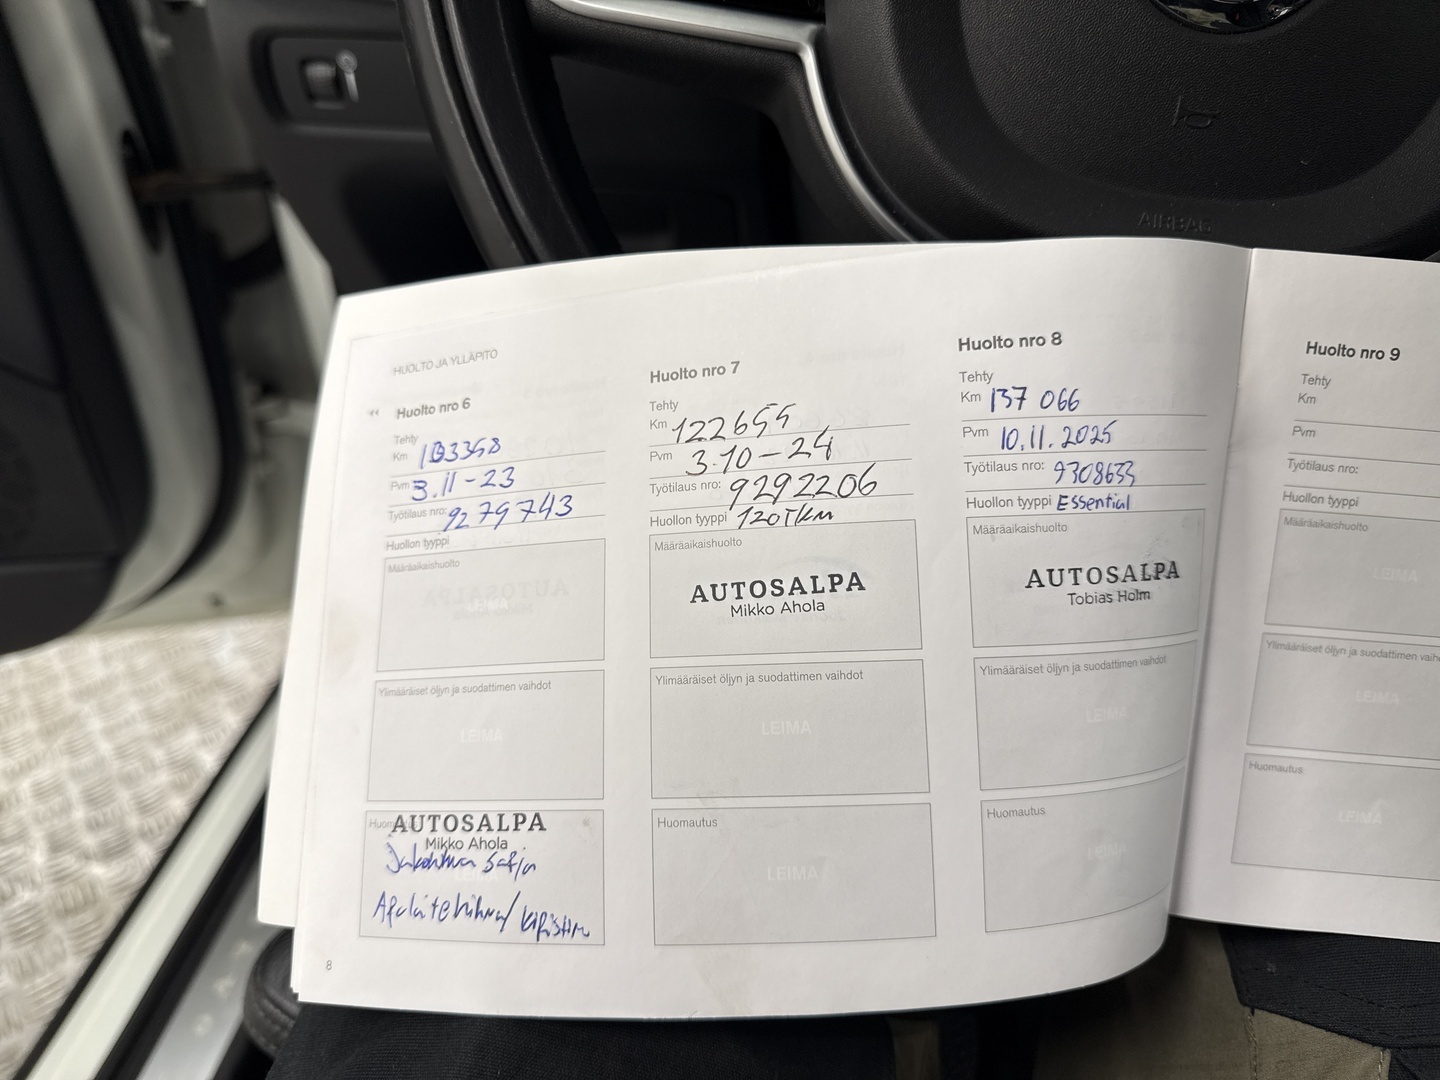 AIRBAG
HUOLTO JA YLLÄPITO
Huolto nro 6
Tehty
Km 103358
Pvm 3.11-23
Työtilaus nro: 9279743
Huollon tyyppi
Määräaikaishuolto
LEIMA
Ylimääräiset öljyn ja suodattimen vaihdot
LEIMA
Huomautus
AUTOSALPA
Mikko Ahola
Jakohihna sarja
Apulaitehihna/ kiristin
8
Huolto nro 7
Tehty
Km 122655
Pvm 3.10-24
Työtilaus nro: 9292206
Huollon tyyppi 120Tkm
Määräaikaishuolto
AUTOSALPA
Mikko Ahola
Ylimääräiset öljyn ja suodattimen vaihdot
LEIMA
Huomautus
LEIMA
Huolto nro 8
Tehty
Km 137 066
Pvm 10.11.2025
Työtilaus nro: 9308633
Huollon tyyppi Essential
Määräaikaishuolto
AUTOSALPA
Tobias Holm
Ylimääräiset öljyn ja suodattimen vaihdot
LEIMA
Huomautus
LEIMA
Huolto nro 9
Tehty
Km
Pvm
Työtilaus nro:
Huollon tyyppi
Määräaikaishuolto
LEIMA
Ylimääräiset öljyn ja suodattimen
LEIMA
Huomautus
LEIMA